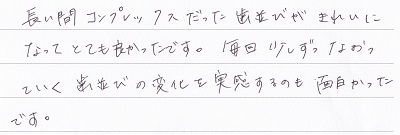 長い間コンプレックスだった歯並びがきれいに
なってとても良かったです。毎回少しずつなおっ
ていく歯並びの変化を実感するのも面白かった
です。